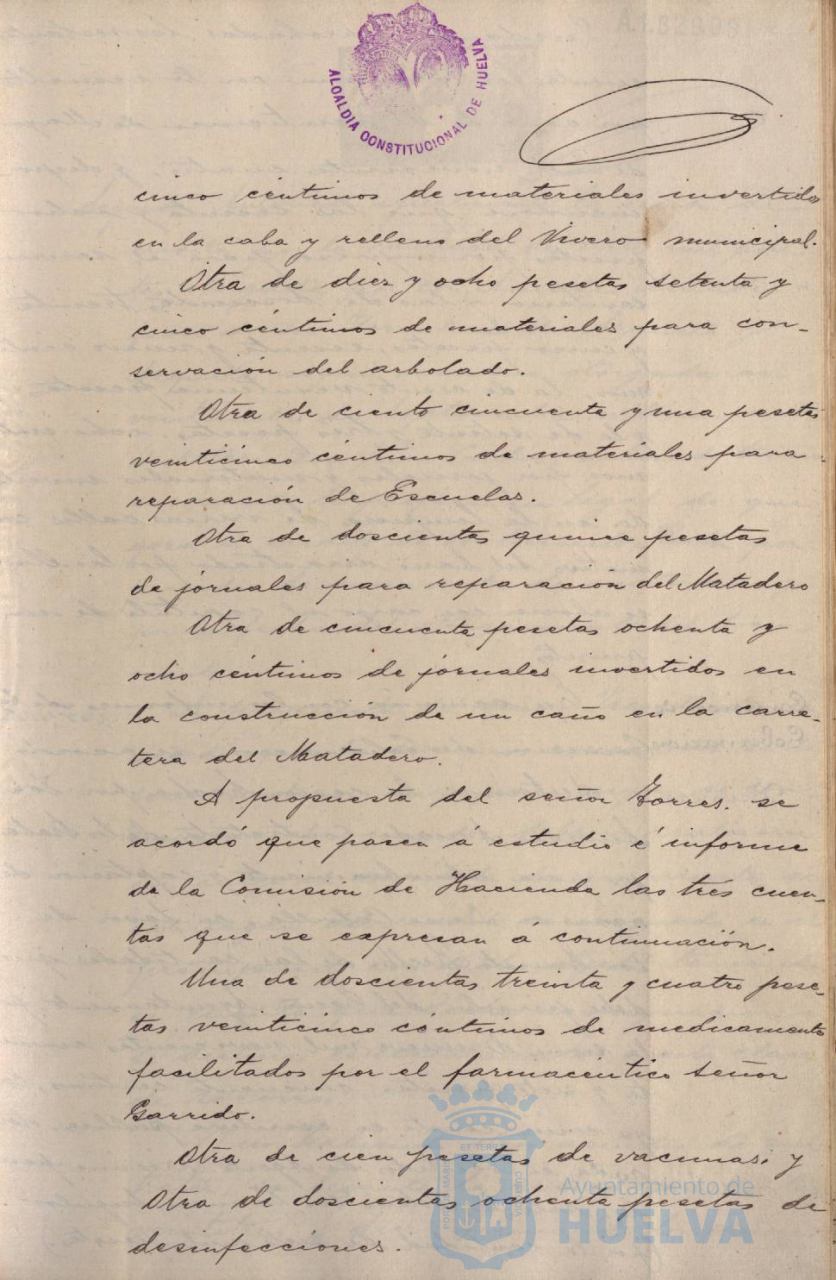 ALCALDIA CONSTITUCIONAL DE HUELVA
cinco céntimos de materiales invertidos
en la caba y relleno del Vivero municipal.
Otra de diez y ocho pesetas setenta y
cinco céntimos de materiales para con-
servación del arbolado.
Otra de ciento cincuenta y una pesetas
veinticinco céntimos de materiales para
reparación de Escuelas.
Otra de doscientas quince pesetas
de jornales para reparación del Matadero
Otra de cincuenta pesetas ochenta y
ocho céntimos de jornales invertidos en
la construcción de un caño en la carre-
tera del Matadero.
A propuesta del señor Torres. se
acordó que pasen á estudio é informe
de la Comisión de Hacienda las tres cuen-
tas que se expresan á continuación.
Una de doscientas treinta y cuatro pese-
tas veinticinco céntimos de medicamentos
facilitados por el farmacéutico señor
Garrido.
Otra de cien pesetas de vacunas; y
Otra de doscientas ochenta pesetas de
desinfecciones.
Ayuntamiento de
HUELVA